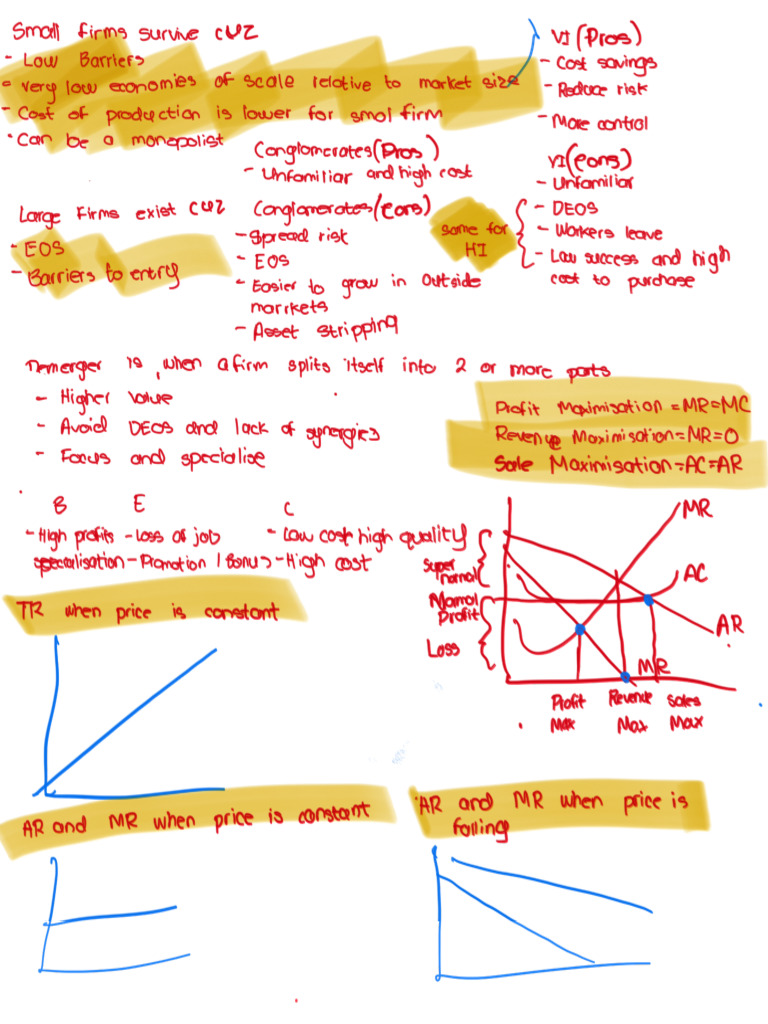 Small firms survive cuz
- Low Barriers
- very low economies of scale relative to market size
- Cost of production is lower for smol firm
- Can be a monopolist
VI (Pros)
- Cost savings
- Reduce risk
- More control
Conglomerates (Pros)
- Unfamiliar and high cost
VI (cons)
- Unfamiliar
- DEOS
- Workers leave
- Low success and high cost to purchase
same for HI
Large Firms exist cuz
- EOS
- Barriers to entry
Conglomerates (Cons)
- Spread risk
- EOS
- Easier to grow in outside markets
- Asset stripping
Demerger is when a firm splits itself into 2 or more parts
- Higher value
- Avoid DEOS and lack of synergies
- Focus and specialise
Profit Maximisation = MR=MC
Revenue Maximisation = MR=0
Sale Maximisation = AC=AR
B E C
- High profits - Loss of job - Low cost high quality
specialisation - Promotion / Bonus - High cost
MR
Super normal
AC
Normal Profit
AR
Loss
MR
Profit Max
Revenue Max
Sales Max
TR when price is constant
AR and MR when price is constant
AR and MR when price is falling